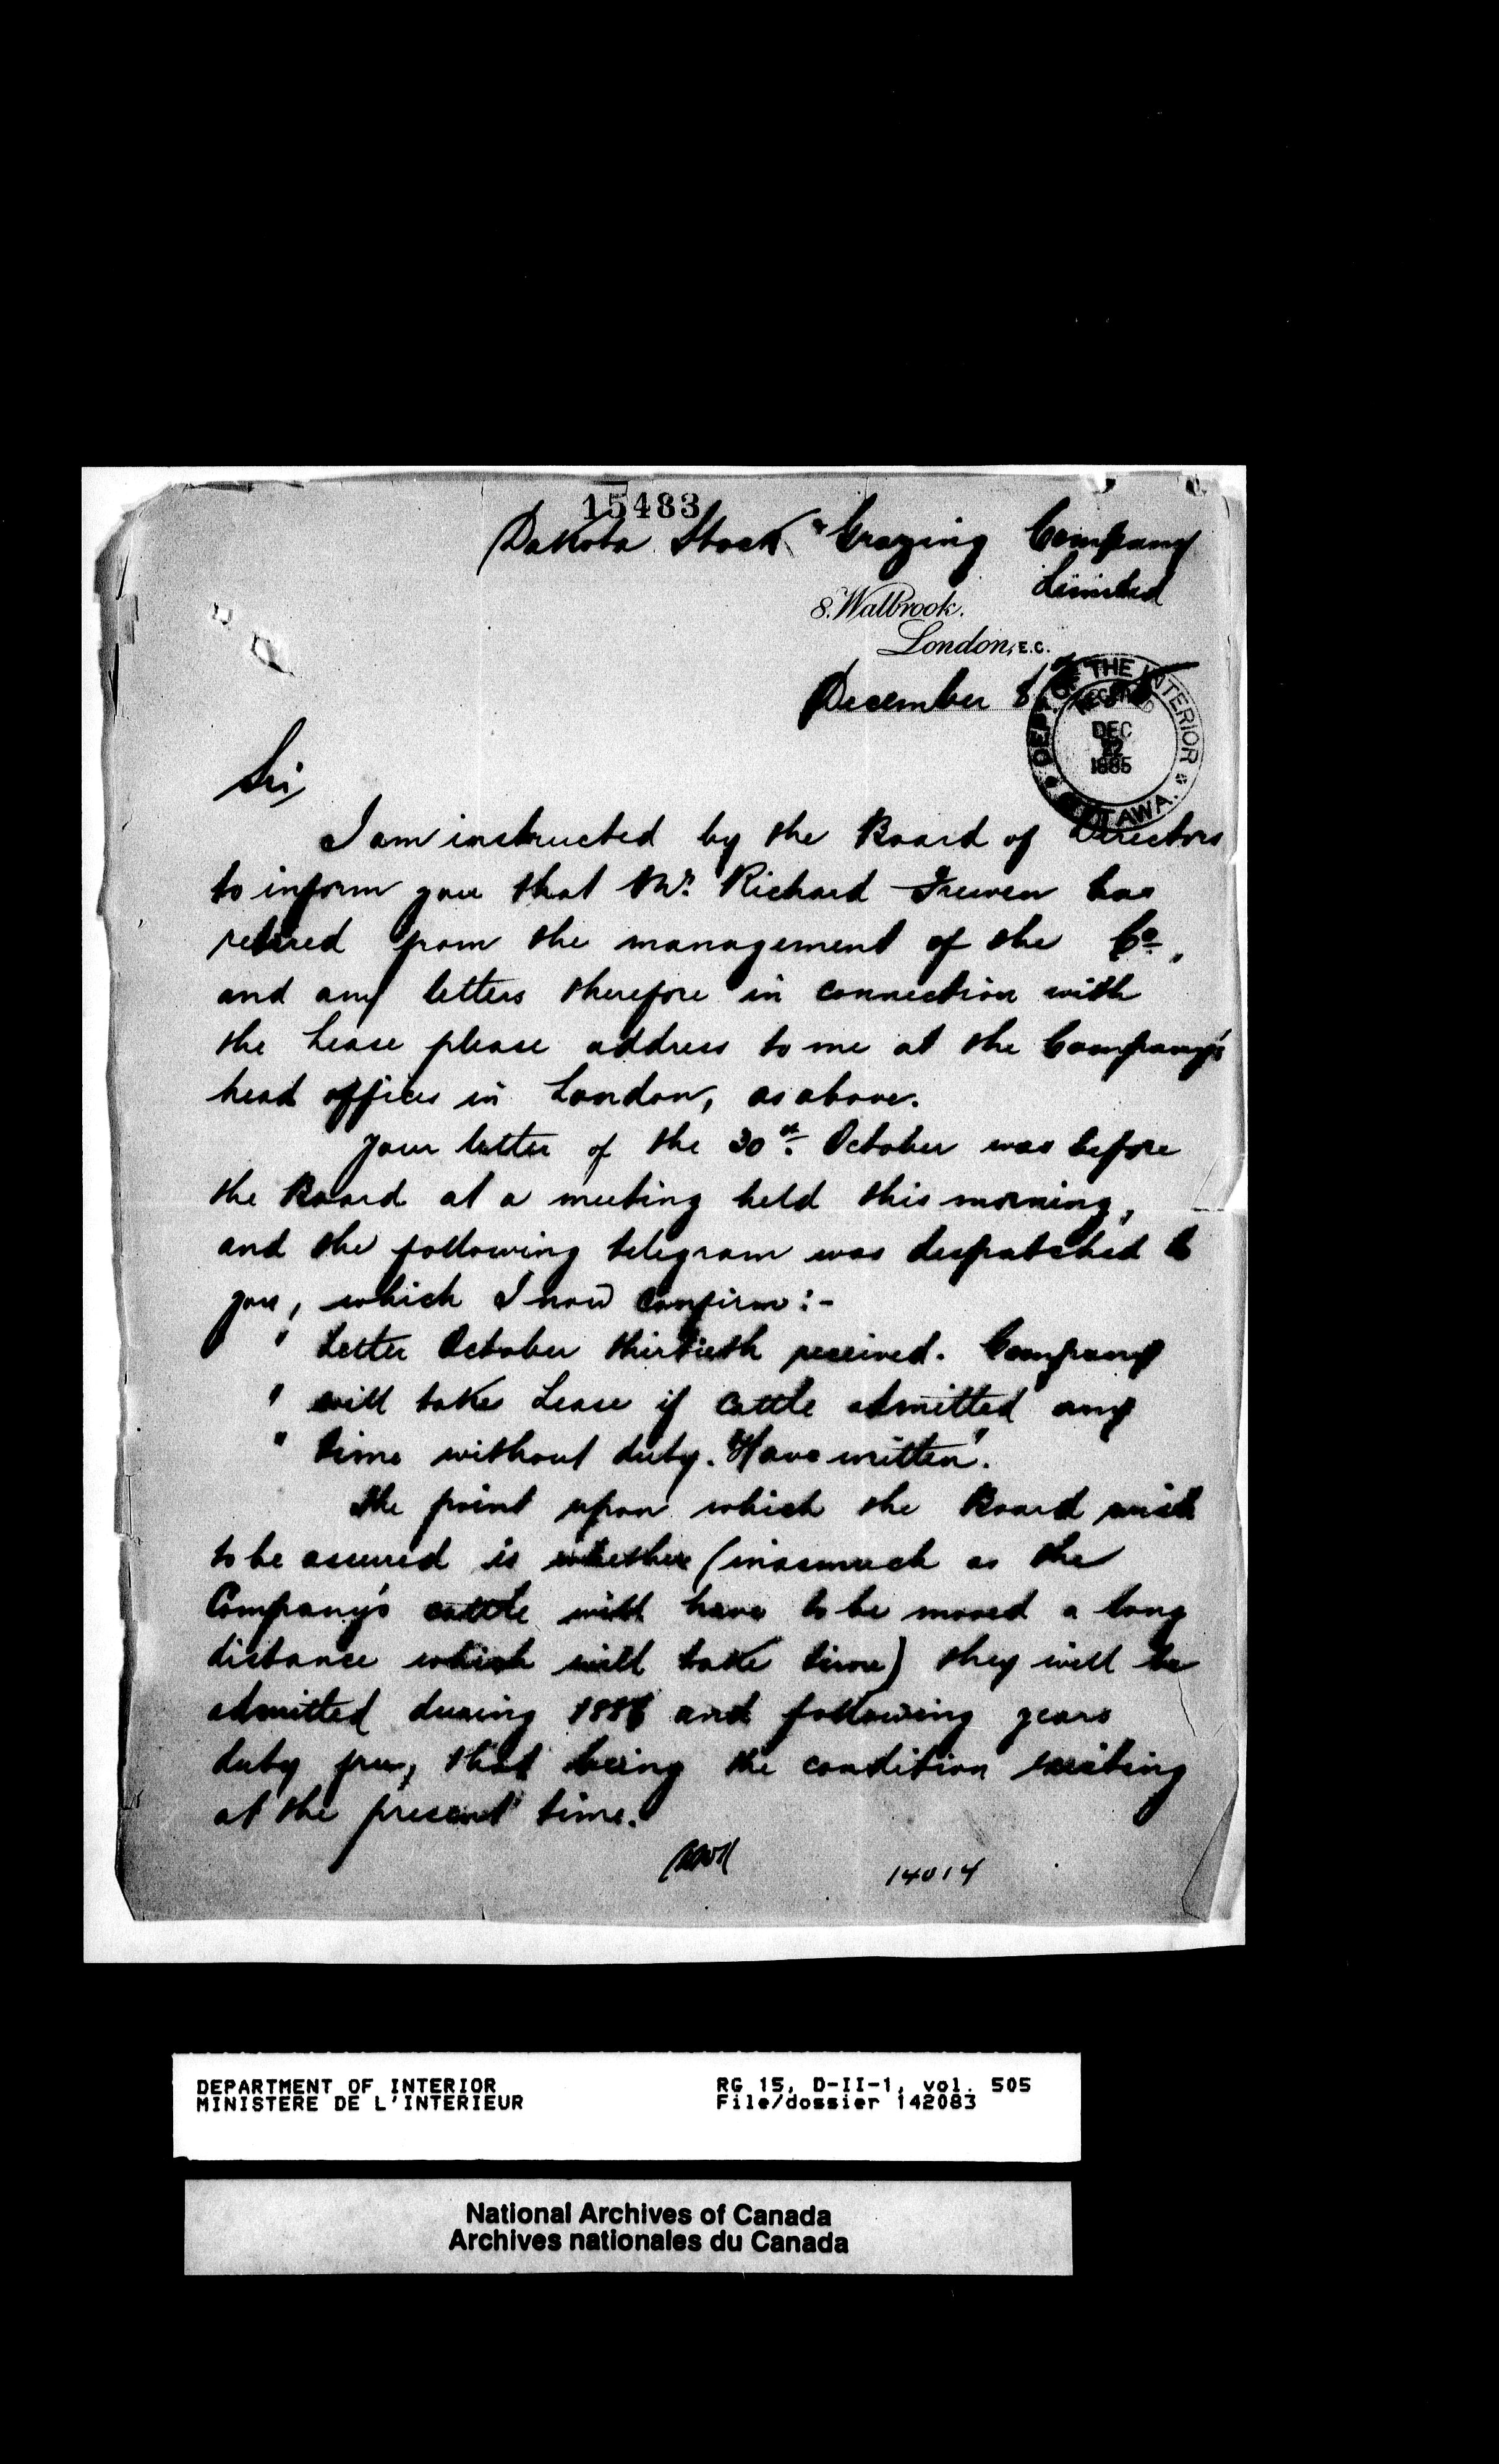 15483
Dakota Stock & Grazing Company
Limited
8. Walbrook.
London, E.C.
December 8
DEPT. OF THE INTERIOR
RECEIVED
DEC
22
1885
OTTAWA.
Sir,
I am instructed by the Board of Directors
to inform you that Mr. Richard Frewen has
retired from the management of the Co.,
and any letters therefore in connection with
the Lease please address to me at the Company's
head offices in London, as above.
Your letter of the 30th. October was before
the Board at a meeting held this morning,
and the following telegram was despatched to
you, which I now confirm:-
" Letter October thirtieth received. Company
" will take Lease if cattle admitted any
" time without duty. Have written".
The point upon which the Board wish
to be assured is whether (inasmuch as the
Company's cattle will have to be moved a long
distance which will take time) they will be
admitted during 1886 and following years
duty free, that being the condition existing
at the present time.
14014
DEPARTMENT OF INTERIOR
MINISTERE DE L'INTERIEUR
RG 15, D-II-1, vol. 505
File/dossier 142083
National Archives of Canada
Archives nationales du Canada